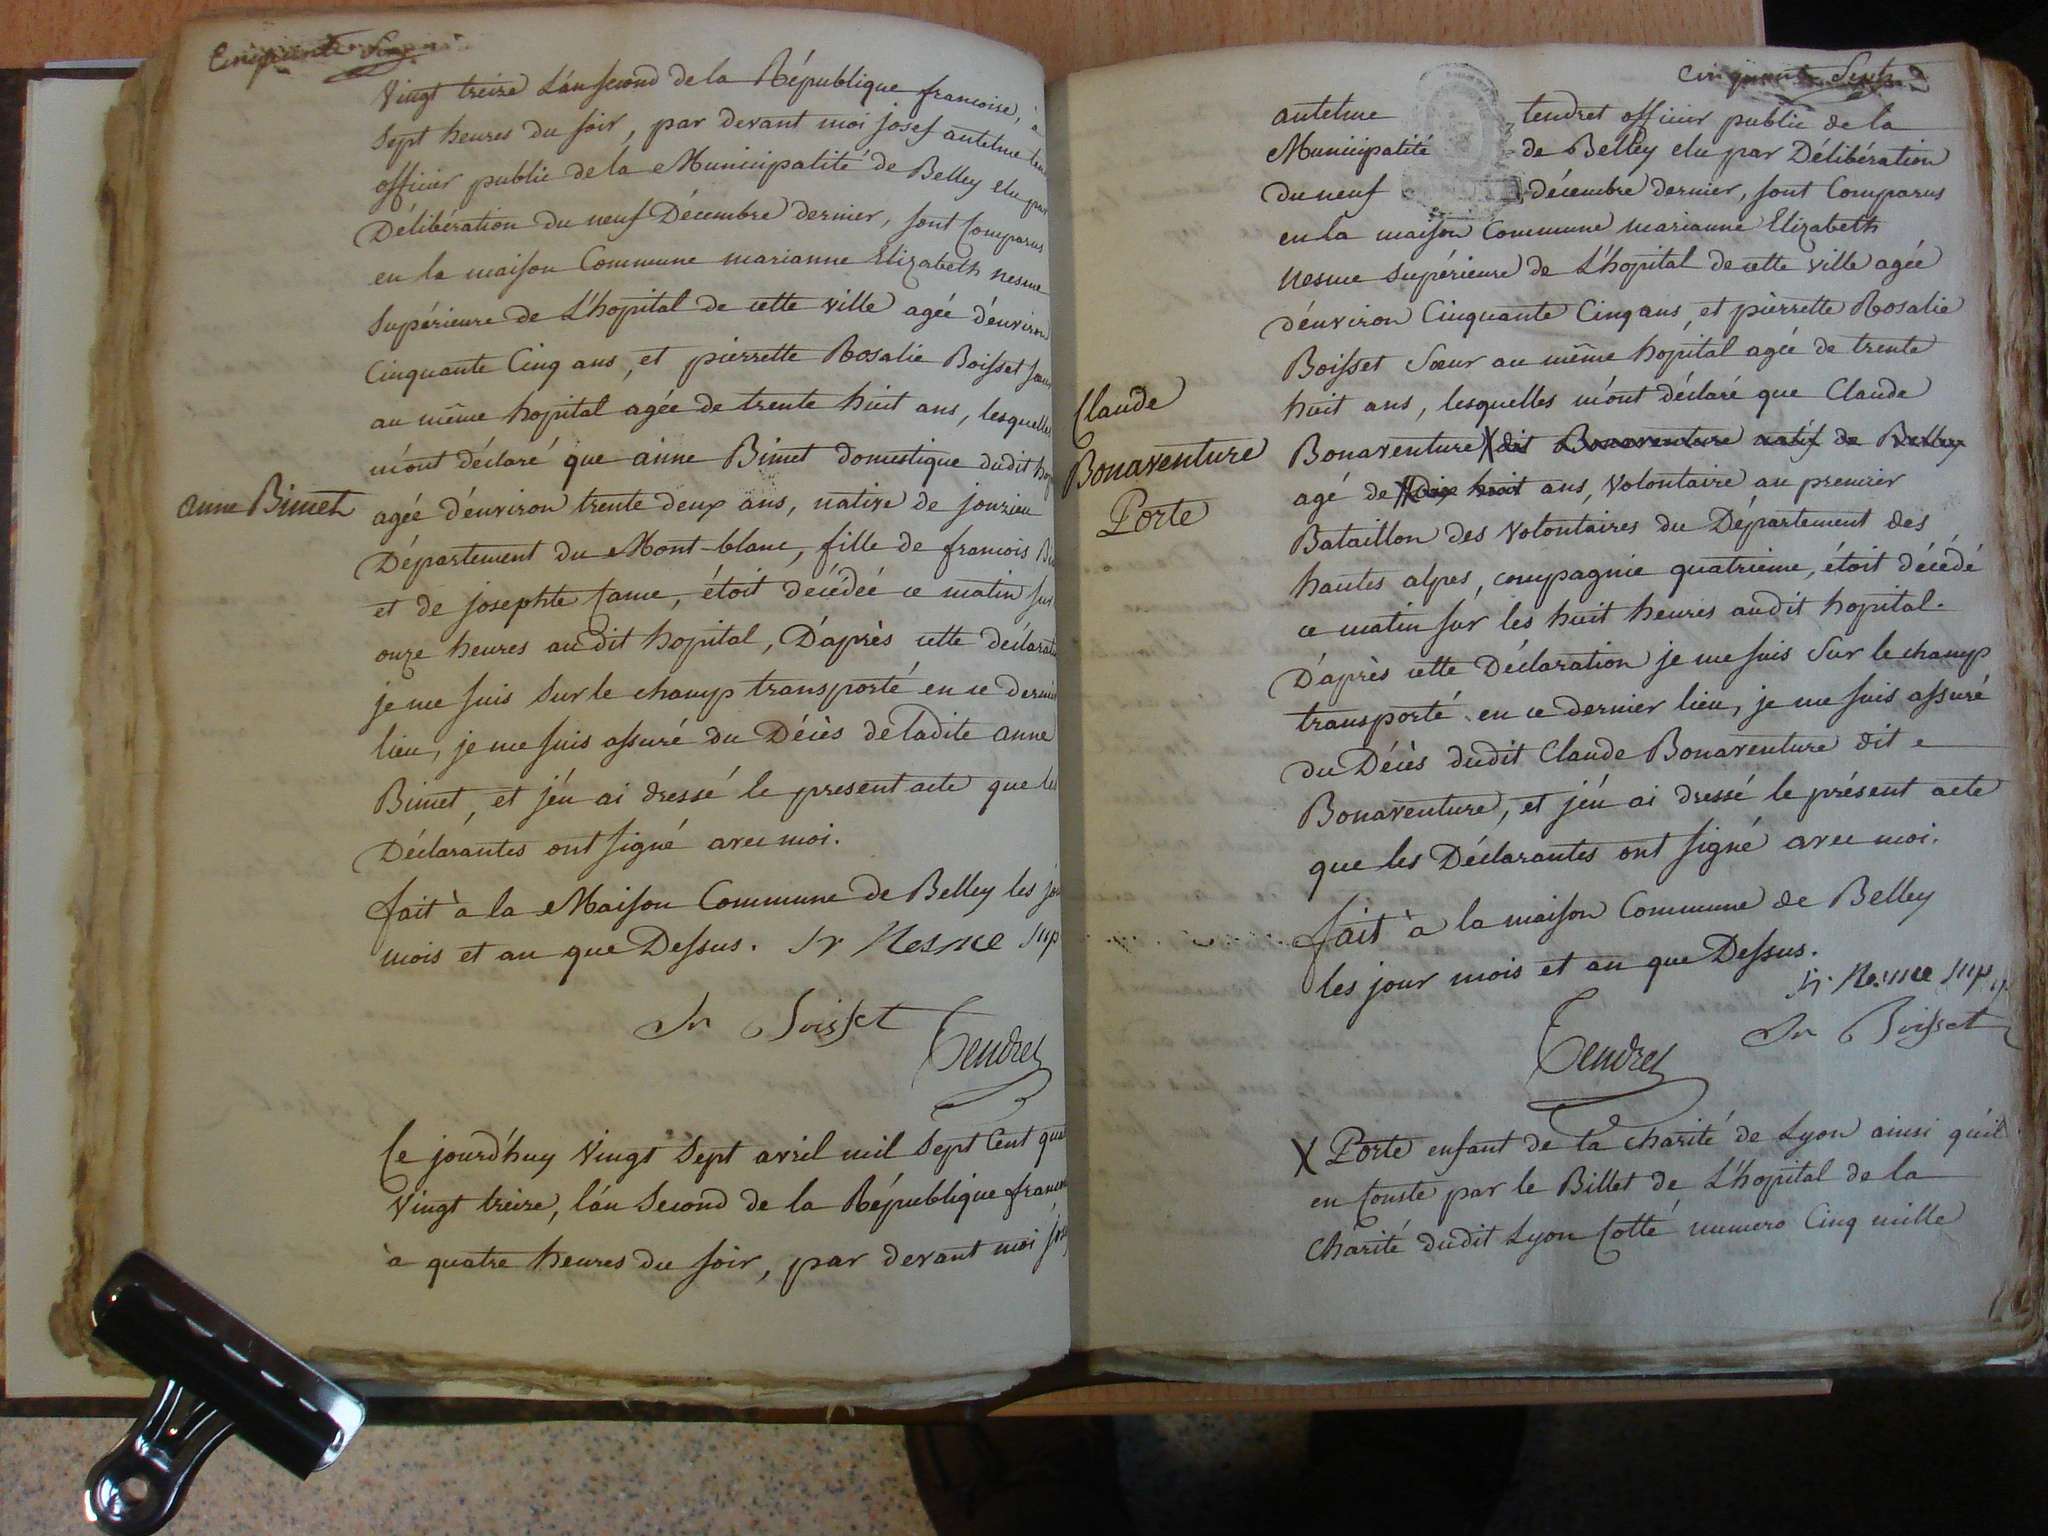 Cinquante Six
Vingt treize L'an second de la République francoise, à
sept heures du soir, par devant moi josef antelme
officier public de la Municipalité de Belley elu par
Délibération du neuf Décembre dernier, sont Comparus
en la maison Commune marianne Elizabeth nesme
supérieure de L'hopital de cette ville agée d'environ
Cinquante Cinq ans, et pierrette Rosalie Boisset sœur
au même hopital agée de trente huit ans, lesquelles
m'ont déclaré que anne Bimet domestique dudit
anne Bimet
agée d'environ trente deux ans, native de jonzieu
Département du Mont-blanc, fille de francois
et de josephte Came, étoit décédée ce matin sur
onze heures audit hopital, D'après cette déclaration
je me suis sur le champ transporté en ce dernier
lieu, je me suis assuré du Décès de ladite anne
Bimet, et j'en ai dressé le present acte que les
Déclarantes ont signé avec moi.
fait à la Maison Commune de Belley les jour
mois et an que Dessus. Sr Nesme sup
Sr Boisset
Tendret
Ce jourd'huy Vingt Sept avril mil Sept Cent quatre
Vingt treize, l'an Second de la République
à quatre heures du soir, par devant moi
Cinquante Sept
antelme tendret officier public de la
Municipalité de Belley elu par Délibération
du neuf décembre dernier, sont Comparus
en la maison Commune marianne Elizabeth
nesme supérieure de L'hopital de cette ville agée
d'environ Cinquante Cinq ans, et pierrette Rosalie
Boisset Sœur au même hopital agée de trente
huit ans, lesquelles m'ont déclaré que Claude
Claude
Bonaventure
Porte
Bonaventure X dit Bonaventure natif de Belley
agé de Dix huit ans, Volontaire au premier
Bataillon des Volontaires du Département des
hautes alpes, compagnie quatrieme, étoit décédé
ce matin sur les huit heures audit hopital.
D'après cette Déclaration je me suis Sur le champ
transporté en ce dernier lieu, je me suis assuré
du Décès dudit Claude Bonaventure dit
Bonaventure, et j'en ai dressé le présent acte
que les Déclarantes ont signé avec moi.
fait à la maison Commune de Belley
les jour mois et an que Dessus.
Sr Nesme sup
Sr Boisset
Tendret
X Porte enfant de la charité de Lyon ainsi qu'il
en Conste par le Billet de L'hopital de la
Charité dudit Lyon Cotté numero Cinq mille